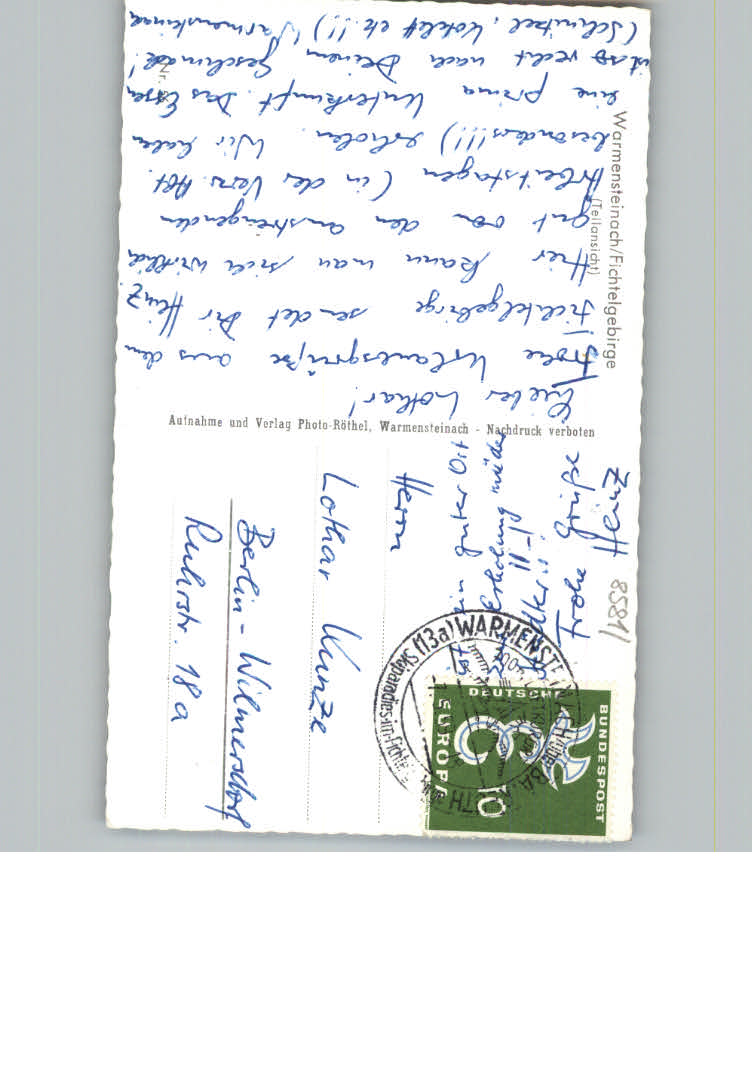 Warmensteinach/Fichtelgebirge
(Teilansicht)
Lieber Lothar!
Frohe Urlaubsgrüße aus dem
Fichtelgebirge sendet Dir Heinz.
Hier kann man sich wirklich
gut von den anstrengenden
Arbeitstagen (in der Vers. Abt.
besonders!!!) erholen. Wir haben
eine prima Unterkunft. Das Essen
ist so recht nach Deinem Geschmack!
(Schnitzel, Kotlett etc.!!!) Warmensteinach
Nr.
Aufnahme und Verlag Photo-Röthel, Warmensteinach - Nachdruck verboten
8581
Frohe Grüße
Heinz
Erholung
Herrn
Lothar Kunze
Berlin-Wilmersdorf
Ruhrstr. 18a
(13a) WARMENSTEINACH
Skiparadies im Fichtel
DEUTSCHE
BUNDESPOST
EUROPA
10